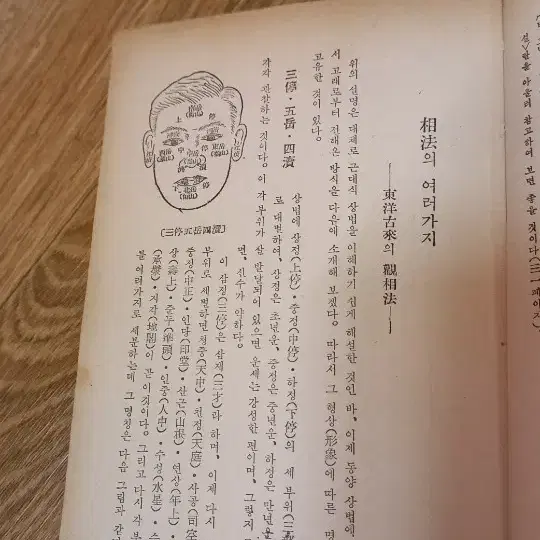 相法의 여러가지
──東洋古來의 觀相法──
위의 설명은 대체로 근대식 상법을 이해하기 쉽게 해설한 것인 바, 이제 동양 상법에
서 고래로부터 전래온 방식을 다음에 소개해 보겠다. 따라서 그 형상(形象)에 따른 명
고유한 것이 있다.
三停·五岳·四瀆
상법에 상정(上停)·중정(中停)·하정(下停)의 세 부위(三
로 대별하여, 상정은 초년운, 중정은 중년운, 하정은 만년운
각각 관찰하는 것이다. 이 각 부위가 잘 발달되어 있으면 운세는 강성한 편이며, 그렇지
면, 신수가 약하다.
이 삼정(三停)은 삼재(三才)라 하며, 이제 다시
부위로 세별하면 천중(天中)·천정(天庭)·사공(司空
중정(中正)·인당(印堂)·산근(山根)·연상(年上)·
상(壽上)·준두(準頭)·인중(人中)·수성(水星)·승
(承漿)·지각(地閣)이 곧 이것이다. 그리고 다시 각 부
를 여러가지로 세분하는데 그 명칭은 다음 그림과 같
(三停五岳四瀆)